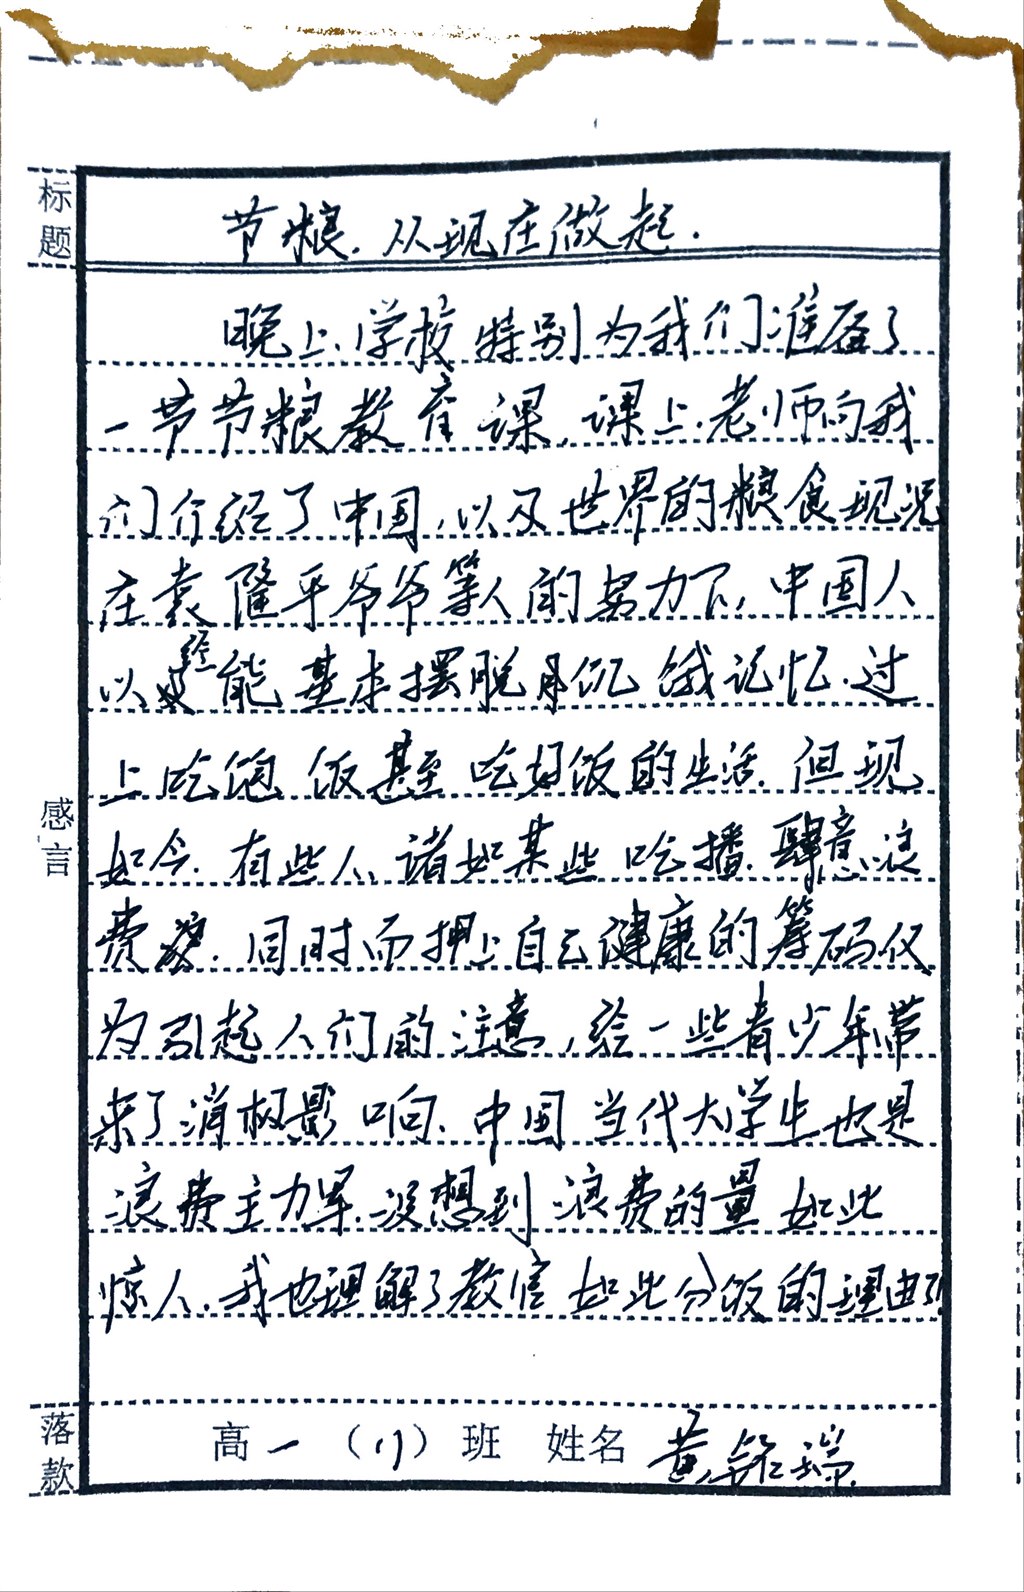 标题
节粮.从现在做起.
晚上,学校特别为我们准备了
一节节粮教育课,课上,老师向我
们介绍了中国,以及世界的粮食现况
在袁隆平爷爷等人的努力下,中国人
以经能基本摆脱饥饿记忆.过
上吃饱饭甚至吃好饭的生活.但现
如今.有些人,诸如某些吃播.肆意浪
费粮.同时而押上自己健康的筹码仅
为引起人们的注意,给一些青少年带
来了消极影响.中国当代大学生也是
浪费主力军.没想到浪费的量如此
惊人.我也理解了教官如此分饭的理由了!
感言
落款
高一（17）班 姓名 黄铭瑞